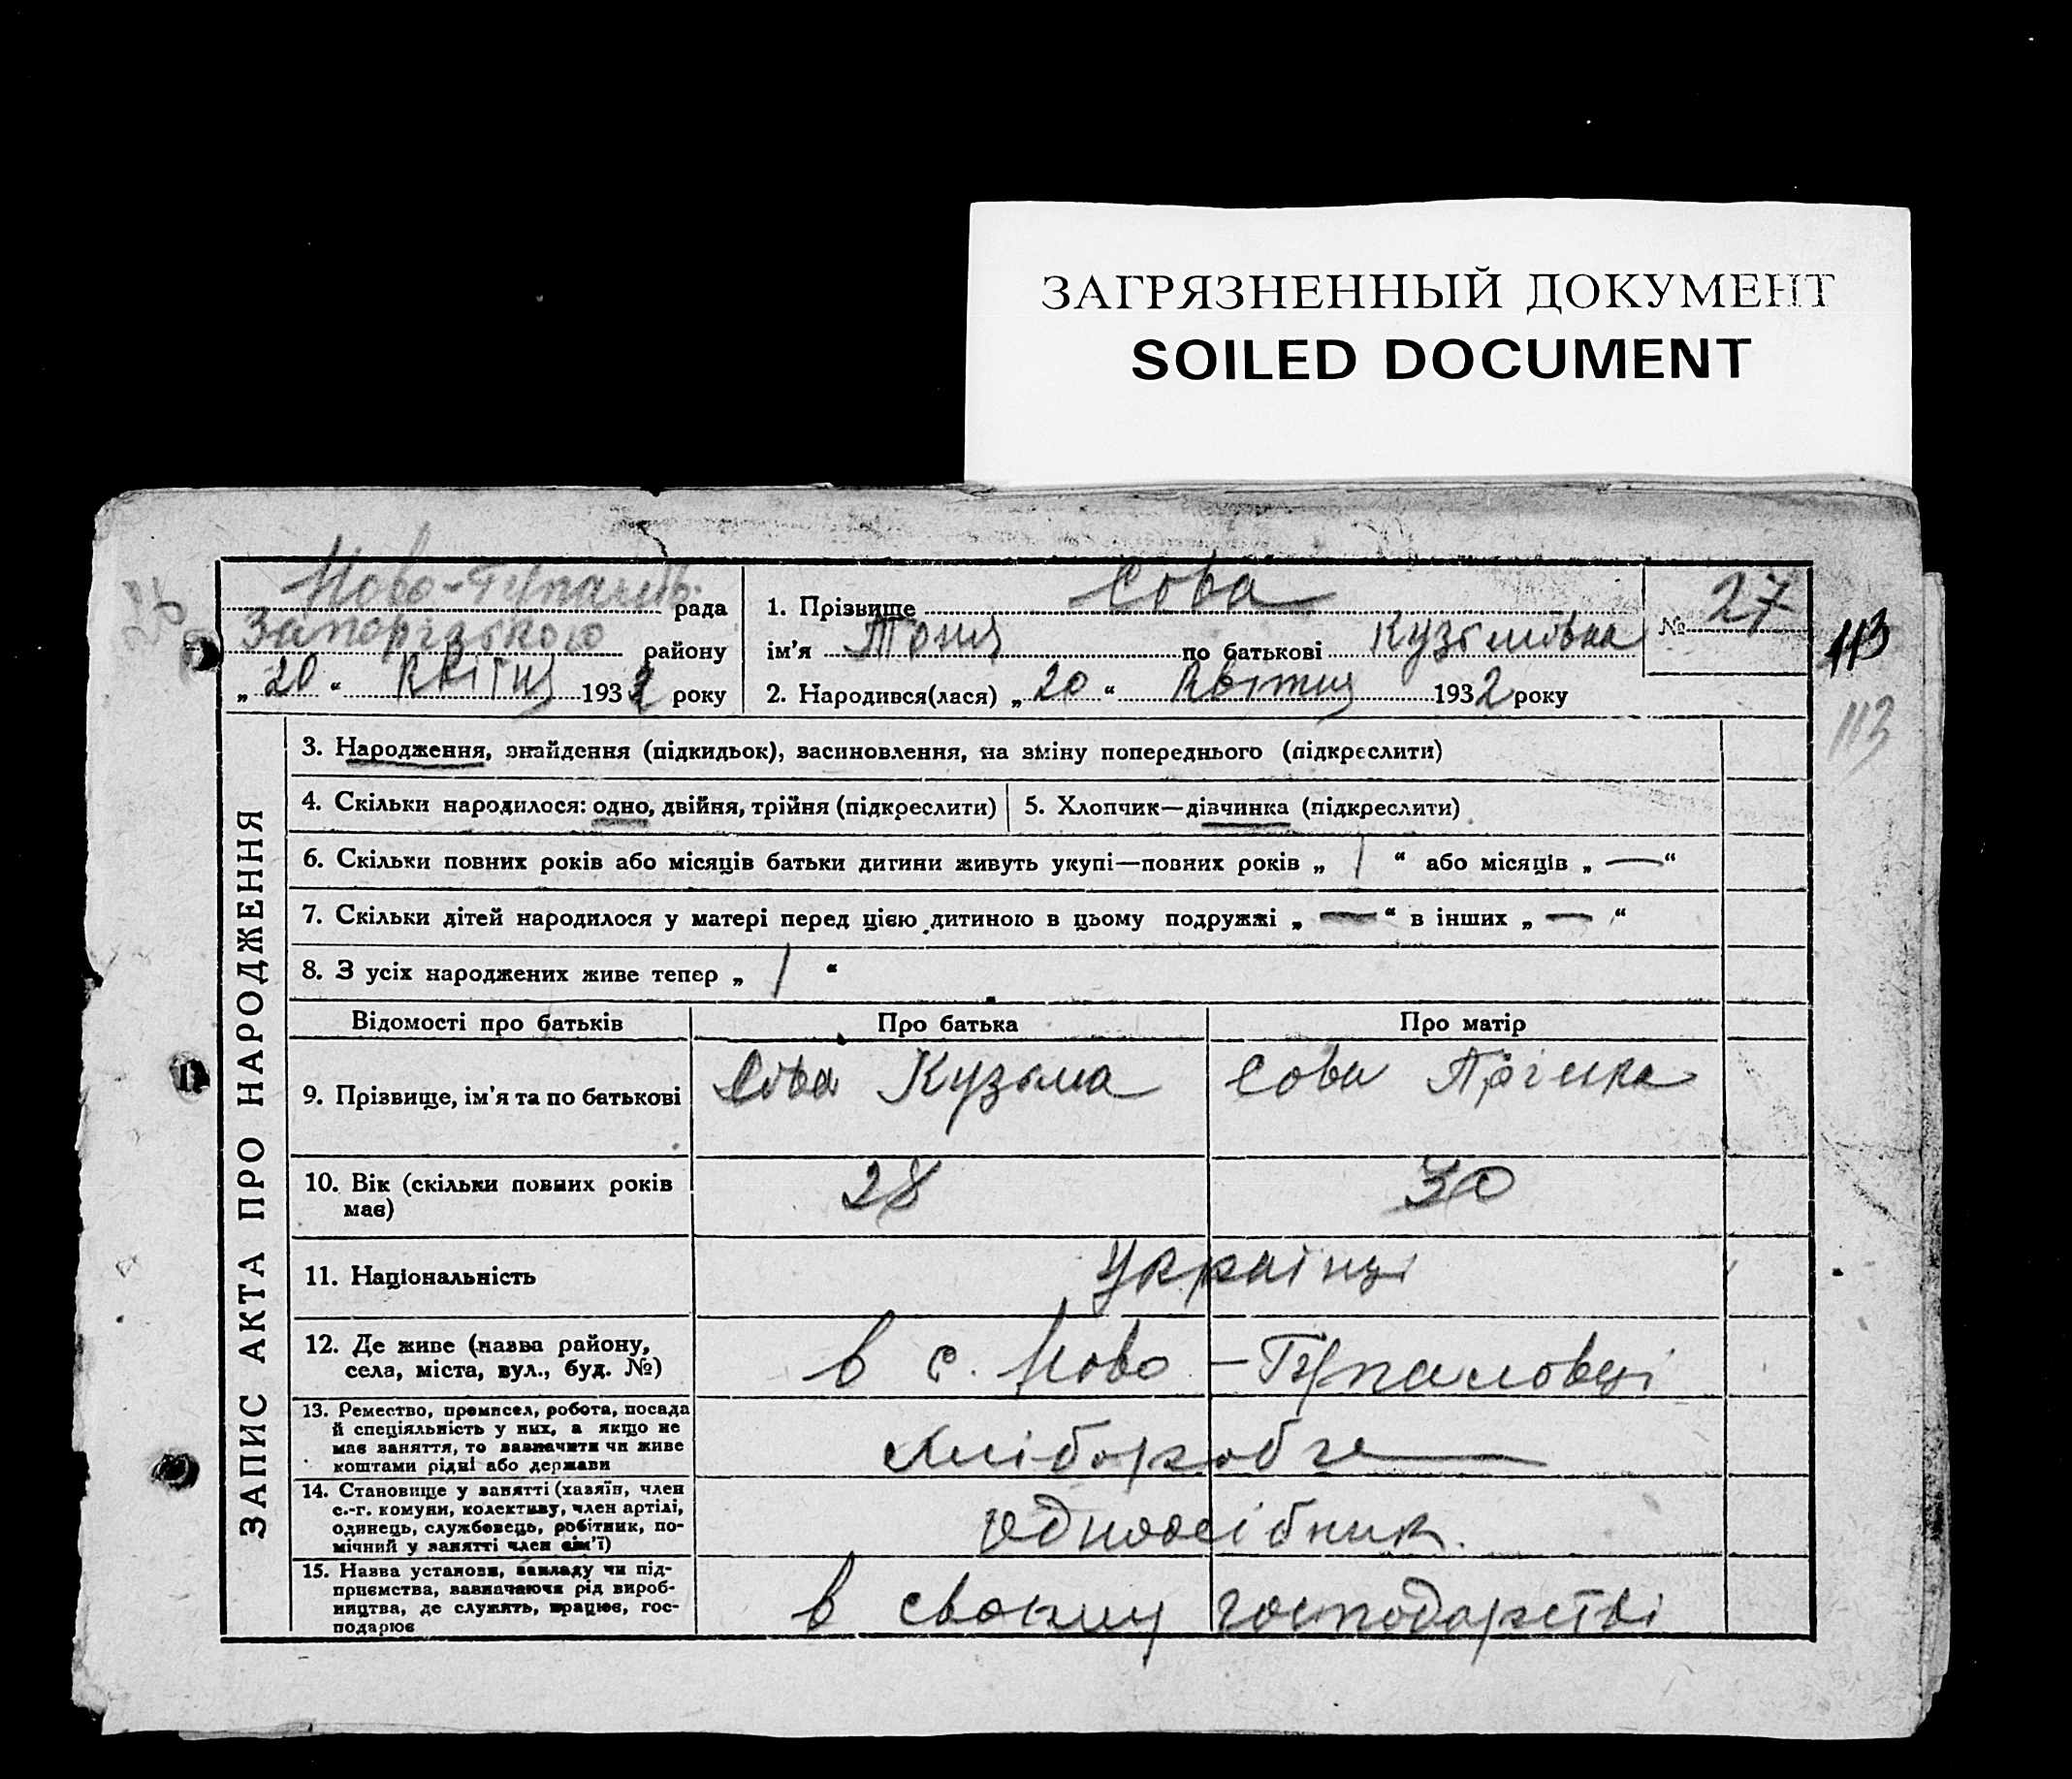 ЗАГРЯЗНЕННЫЙ ДОКУМЕНТ
SOILED DOCUMENT
Ново-Гупалів. рада
Запорізького району
„ 20 “ Квітня 1932 року
1. Прізвище Сова
ім'я Тоня по батькові Кузьмівна
2. Народився(лася) „ 20 “ Квітня 1932 року
№ 27
113
113
ЗАПИС АКТА ПРО НАРОДЖЕННЯ
3. Народження, знайдення (підкидьок), васиновлення, на зміну попереднього (підкреслити)
4. Скільки народилося: одно, двійня, трійня (підкреслити)
5. Хлопчик—дівчинка (підкреслити)
6. Скільки повних років або місяців батьки дитини живуть укупі—повних років „ 1 “ або місяців „ — “
7. Скільки дітей народилося у матері перед цією дитиною в цьому подружжі „ — “ в інших „ — “
8. З усіх народжених живе тепер „ 1 “
Відомості про батьків Про батька Про матір
9. Прізвище, ім'я та по батькові Сова Кузьма Сова
10. Вік (скільки повних років має) 28 30
11. Національність Українці
12. Де живе (назва району,
села, міста, вул., буд. №) в с. Ново-Гупаловці
13. Ремество, промисел, робота, посада
й спеціяльність у них, а якщо не
має заняття, то зазначити чи живе
коштами рідні або держави
хлібороб
14. Становище у занятті (хазяїн, член
с.-г. комуни, колективу, член артілі,
одинець, службовець, робітник, по-
мічний у занятті член сім'ї)
одноосібник.
15. Назва установи, закладу чи під-
приємства, зазначаючи рід вироб-
ництва, де служить, працює, гос-
подарює
в своєму господарстві